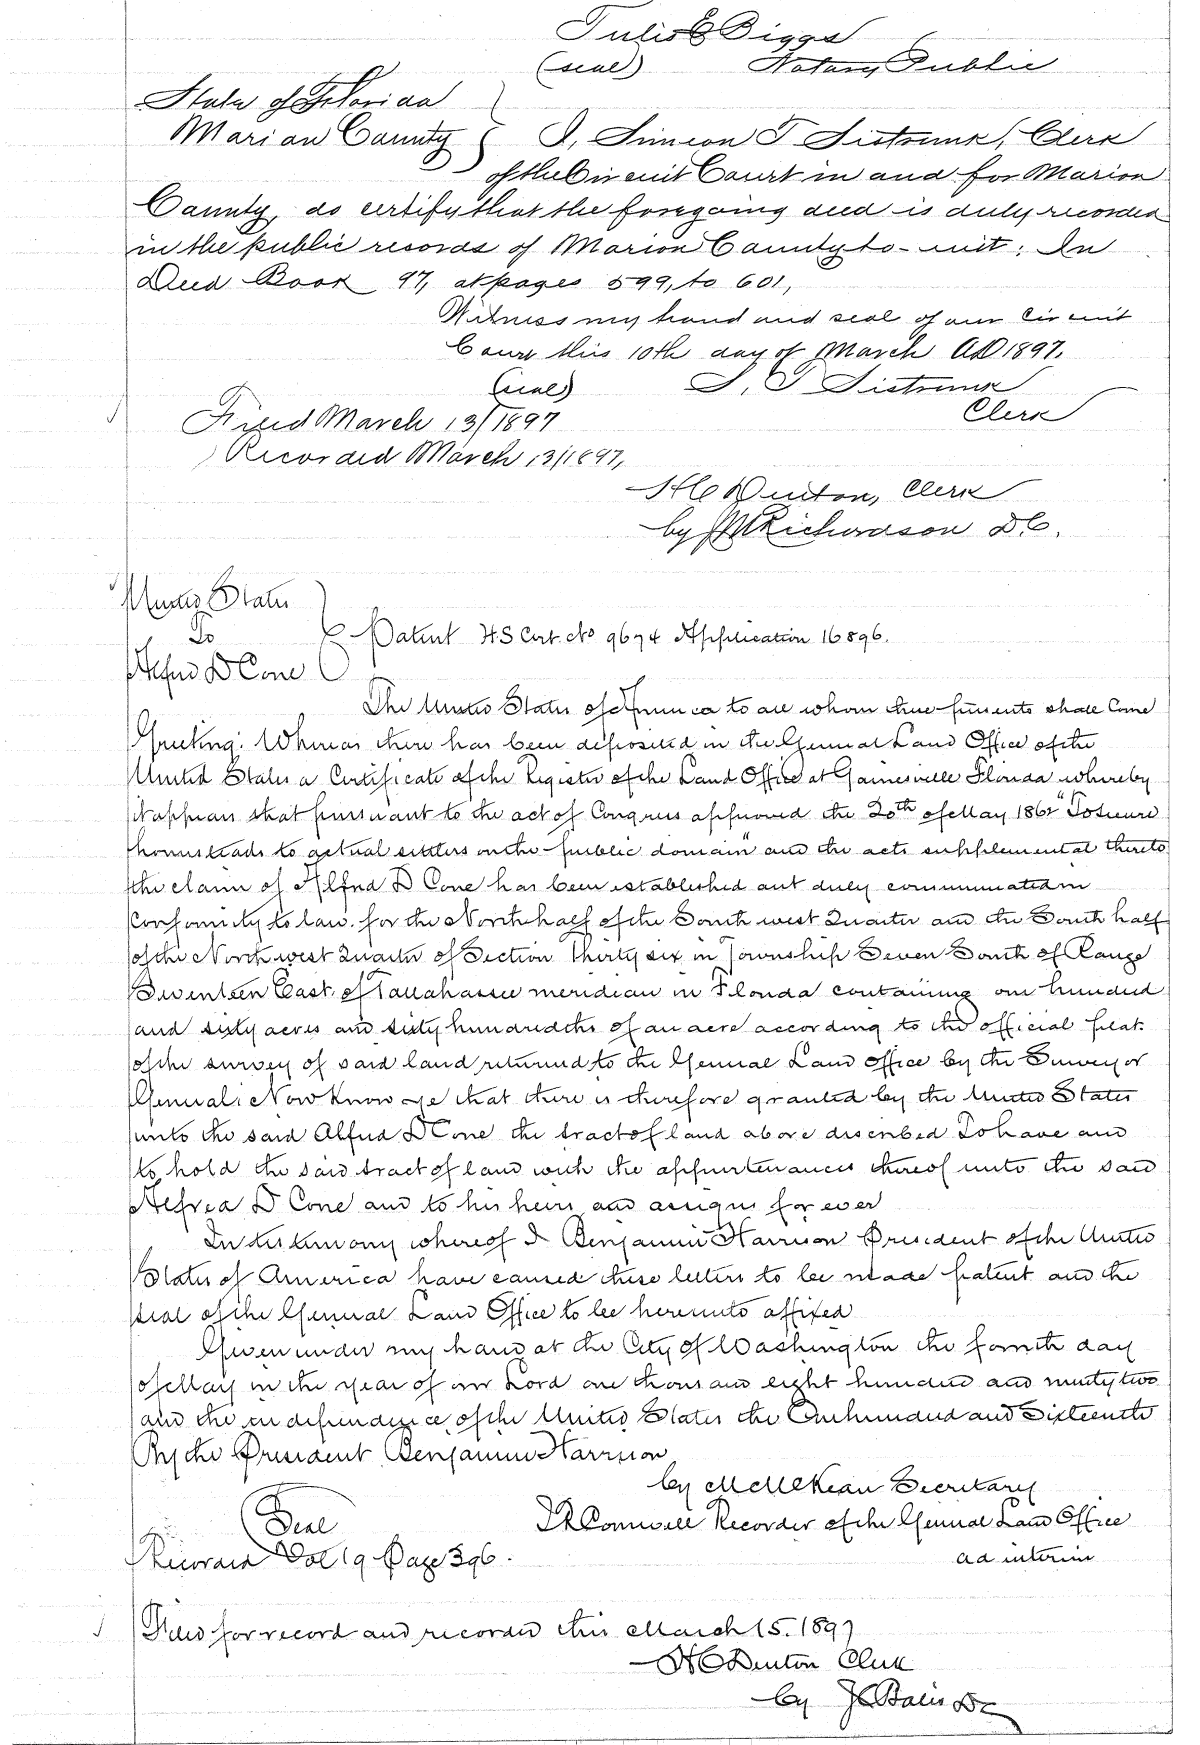 Tulis E Biggs
(seal) Notary Public
State of Florida
Marian County } I, Simeon T Sistrunk, Clerk
of the Circuit Court in and for Marion
County, do certify that the foregoing deed is duly recorded
in the public records of Marion County to-wit: In
Deed Book 97, at pages 599, to 601,
Witness my hand and seal of our Circuit
Court this 10th day of March AD 1897.
(seal) S. T Sistrunk
Clerk
Filed March 13/1897
Recorded March 13/1897,
H C Denton, Clerk
by J M Richardson D C.
United States
To } Patent HS Cert. No 9674 Application 16896.
Alfred D Cone
The United States of America to all whom these presents shall Come
Greeting: Whereas there has been deposited in the General Land Office of the
United States a Certificate of the Register of the Land Office at Gainesville Florida whereby
it appears that pursuant to the act of Congress approved the 20th of May 1862 "To secure
homesteads to actual settlers on the public domain" and the acts supplemental thereto
the claim of Alfred D Cone has been established and duly consummated in
Conformity to law for the North half of the South west Quarter and the South half
of the North west Quarter of Section Thirty six in Township Seven South of Range
Seventeen East of Tallahassee meridian in Florida containing one hundred
and sixty acres and sixty hundredths of an acre according to the official plat
of the survey of said land returned to the General Land office by the Surveyor
General: Now know ye that there is therefore granted by the United States
unto the said Alfred D Cone the tract of land above described To have and
to hold the said tract of land with the appurtenances thereof unto the said
Alfred D Cone and to his heirs and assigns for ever
In testimony whereof I Benjamin Harrison President of the United
States of America have caused these letters to be made patent and the
seal of the General Land Office to be hereunto affixed
Given under my hand at the City of Washington the fourth day
of May in the year of our Lord one thousand eight hundred and ninety two
and the independence of the United States the One hundred and Sixteenth
By the President Benjamin Harrison
by M McKean Secretary
Seal
Conwell Recorder of the General Land Office
Recorded Vol 19 Page 396.
ad interim
Filed for record and recorded this March 15. 1897
H C Denton Clerk
by J C DC